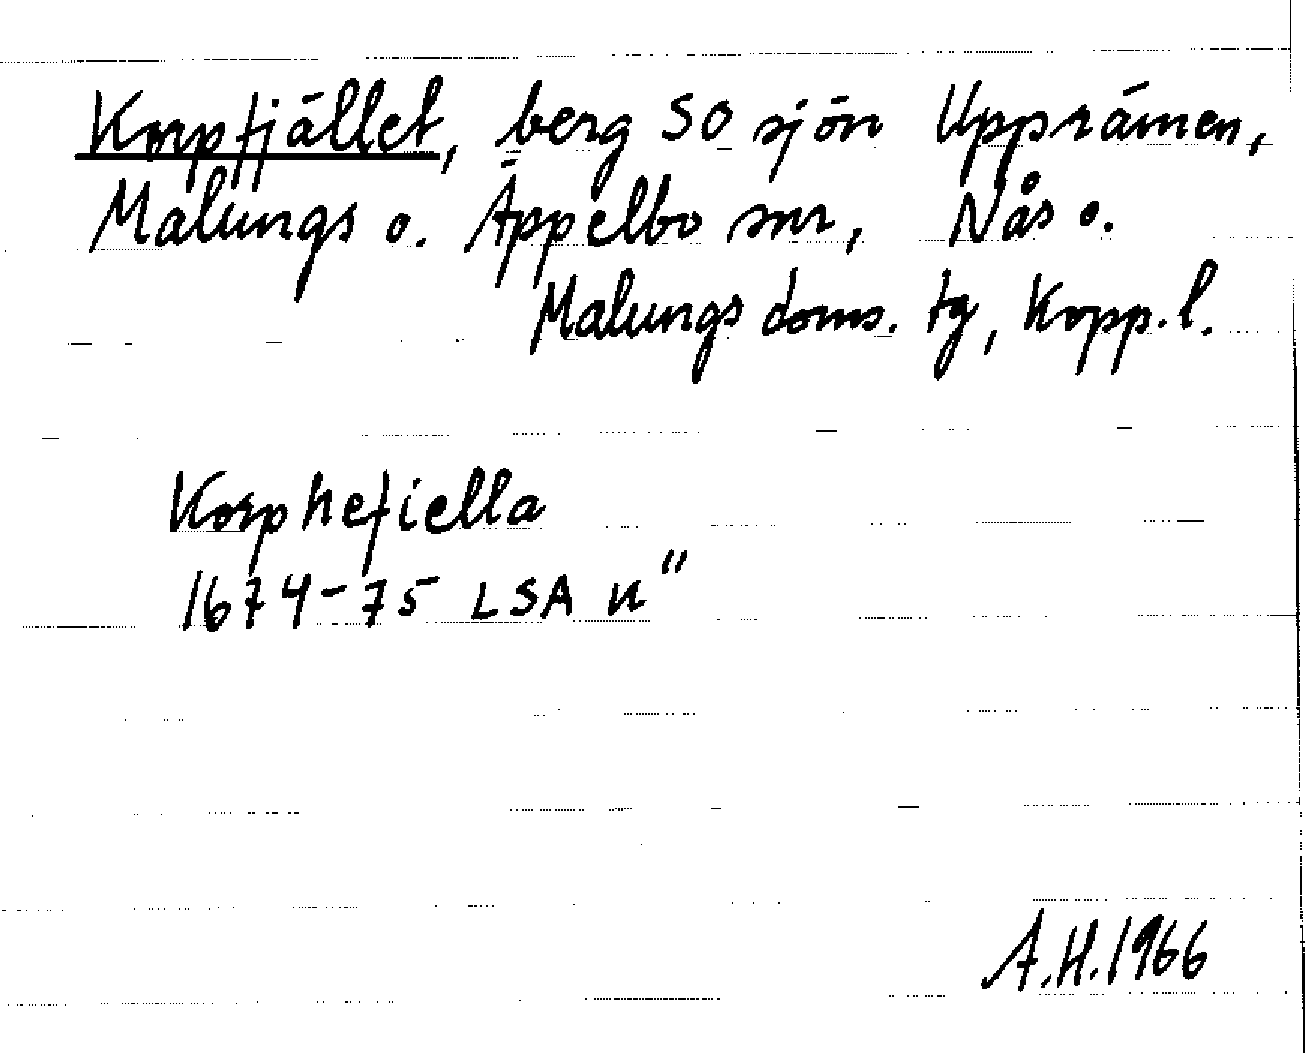 Korpfjället, berg SO sjön Upprämen,
Malungs o. Äppelbo snr, Nås o.
Malungs doms. tg, Kopp. l.
Korphefiella
1674-75 LSA n"
A.H. 1966